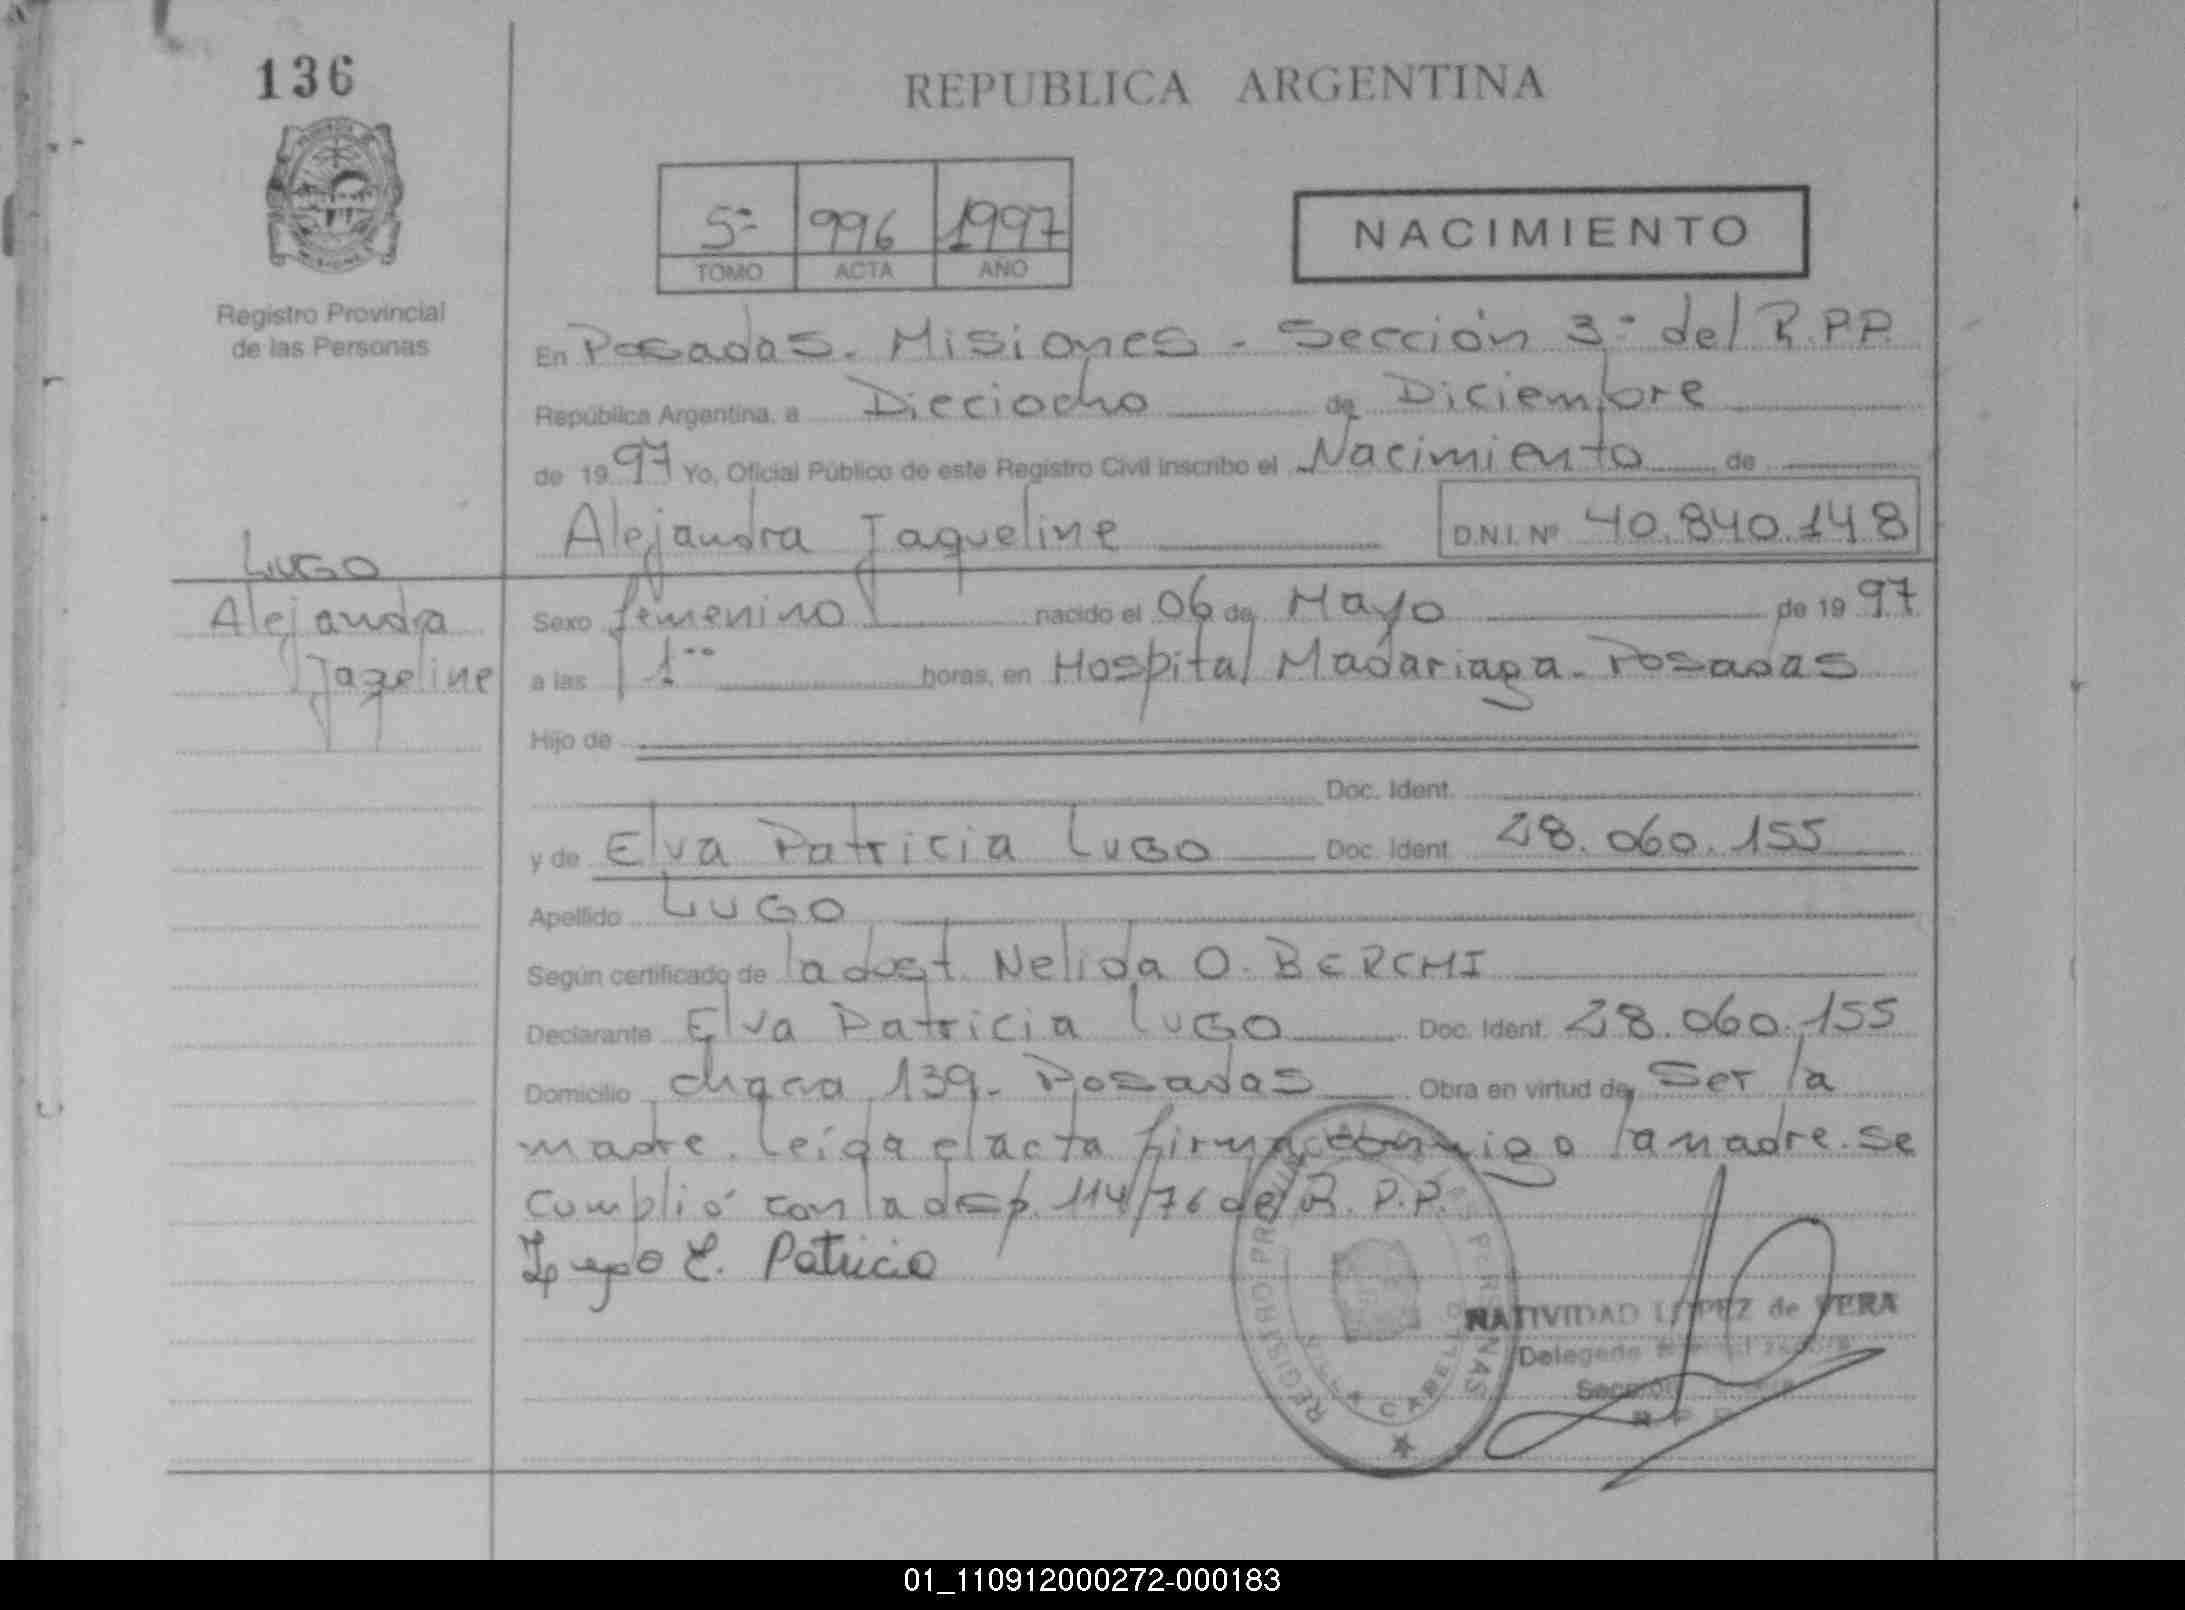 136
REPUBLICA ARGENTINA
5º 996 1997
TOMO ACTA AÑO
NACIMIENTO
Registro Provincial
de las Personas
En Posadas. Misiones - Sección 3º del R.P.P.
República Argentina, a Dieciocho de Diciembre
de 1997 Yo, Oficial Público de este Registro Civil inscribo el Nacimiento de
Alejandra Jaqueline D.N.I. Nº 40.840.148
LUGO
Alejandra
Jaqeline
Sexo femenino nacido el 06 de Mayo de 1997
a las 1 horas, en Hospital Madariaga - Posadas
Hijo de
Doc. Ident.
y de Elva Patricia Lugo Doc. Ident. 28.060.155
Apellido LUGO
Según certificado de la obst. Nelida O. BERCHI
Declarante Elva Patricia Lugo Doc. Ident. 28.060.155
Domicilio chacra 139 - Posadas Obra en virtud de Ser la
madre. Leída el acta firma conmigo la madre. Se
cumplió con la disp. 114/76 del R.P.P.
Lugo E. Patricia
REGISTRO PROVINCIAL DE LAS PERSONAS
CABEL
NATIVIDAD LOPEZ de VERA
Delegada
Sección
R P P
01_110912000272-000183